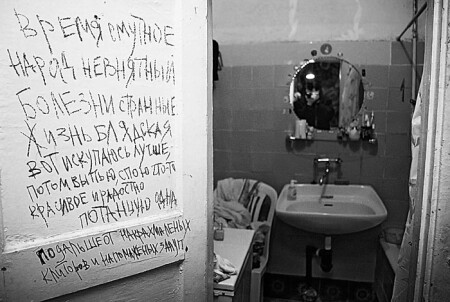 ВРЕМЯ СМУТНОЕ
НАРОД НЕВНЯТНЫЙ
БОЛЕЗНИ СТРАННЫЕ
ЖИЗНЬ БЛЯДСКАЯ
ВОТ ИСКУПАЮСЬ ЛУЧШЕ,
ПОТОМ ВЫПЬЮ СПОЮ ЧТО-ТО
КРАСИВОЕ И РАДОСТНО
ПОТАНЦУЮ ОДНА
ПОДАЛЬШЕ ОТ НАКРАХМАЛЕННЫХ
И НАПОМАЖЕННЫХ